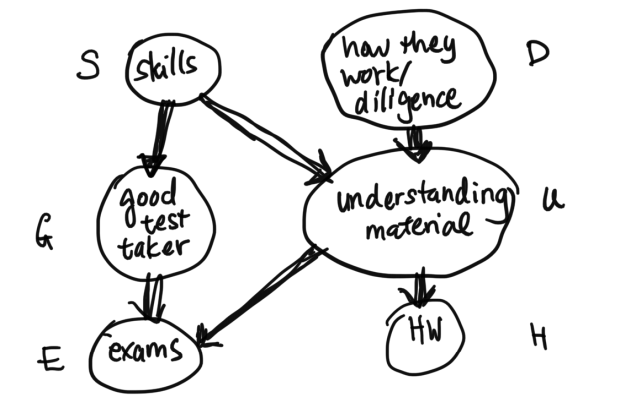 S
skills
how they
work/
diligence
D
G
good
test
taker
understanding
material
U
E
exams
HW
H